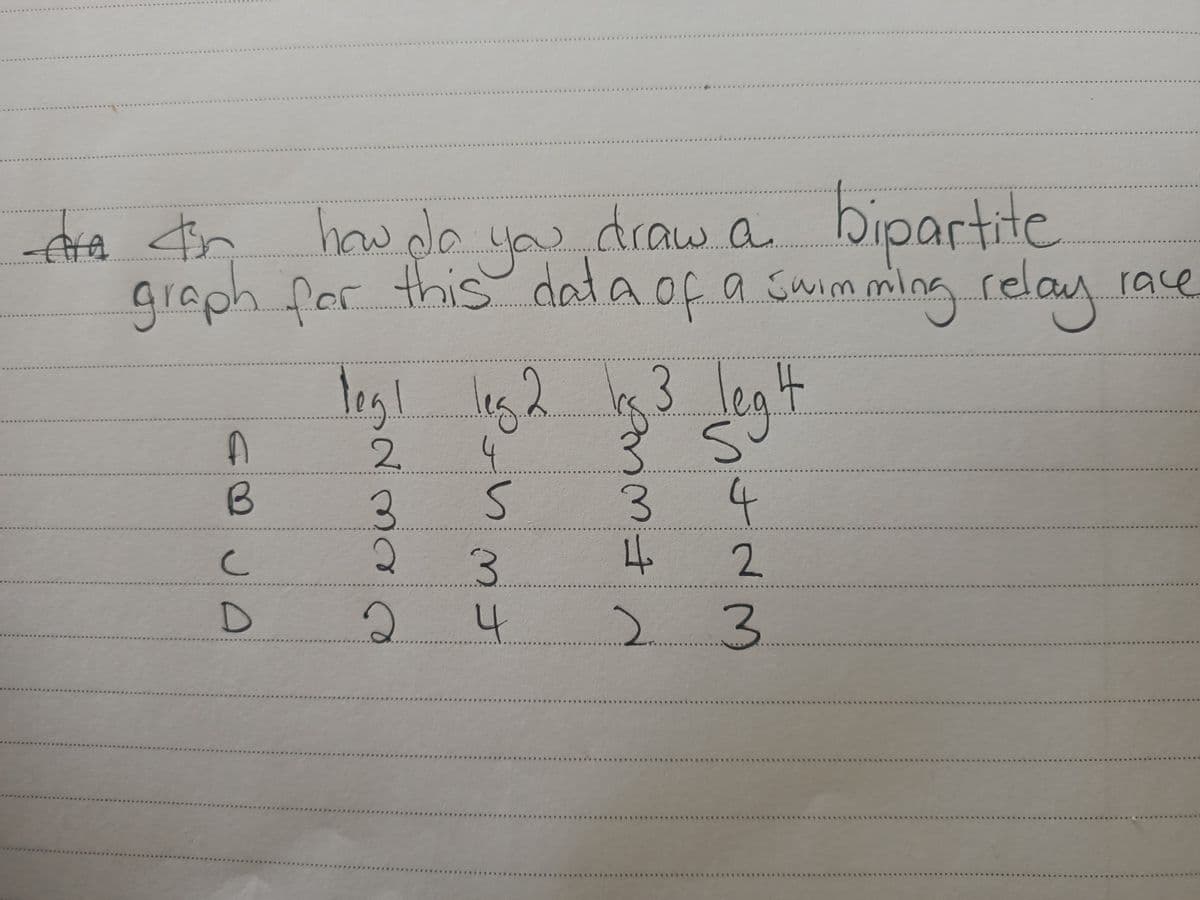 how do you draw a bipartite
graph for this data of a swimming relay race
leg1 leg2 leg3 leg4
A 2 4 3 5
B 3 5 3 4
C 2 3 4 2
D 2 4 2 3